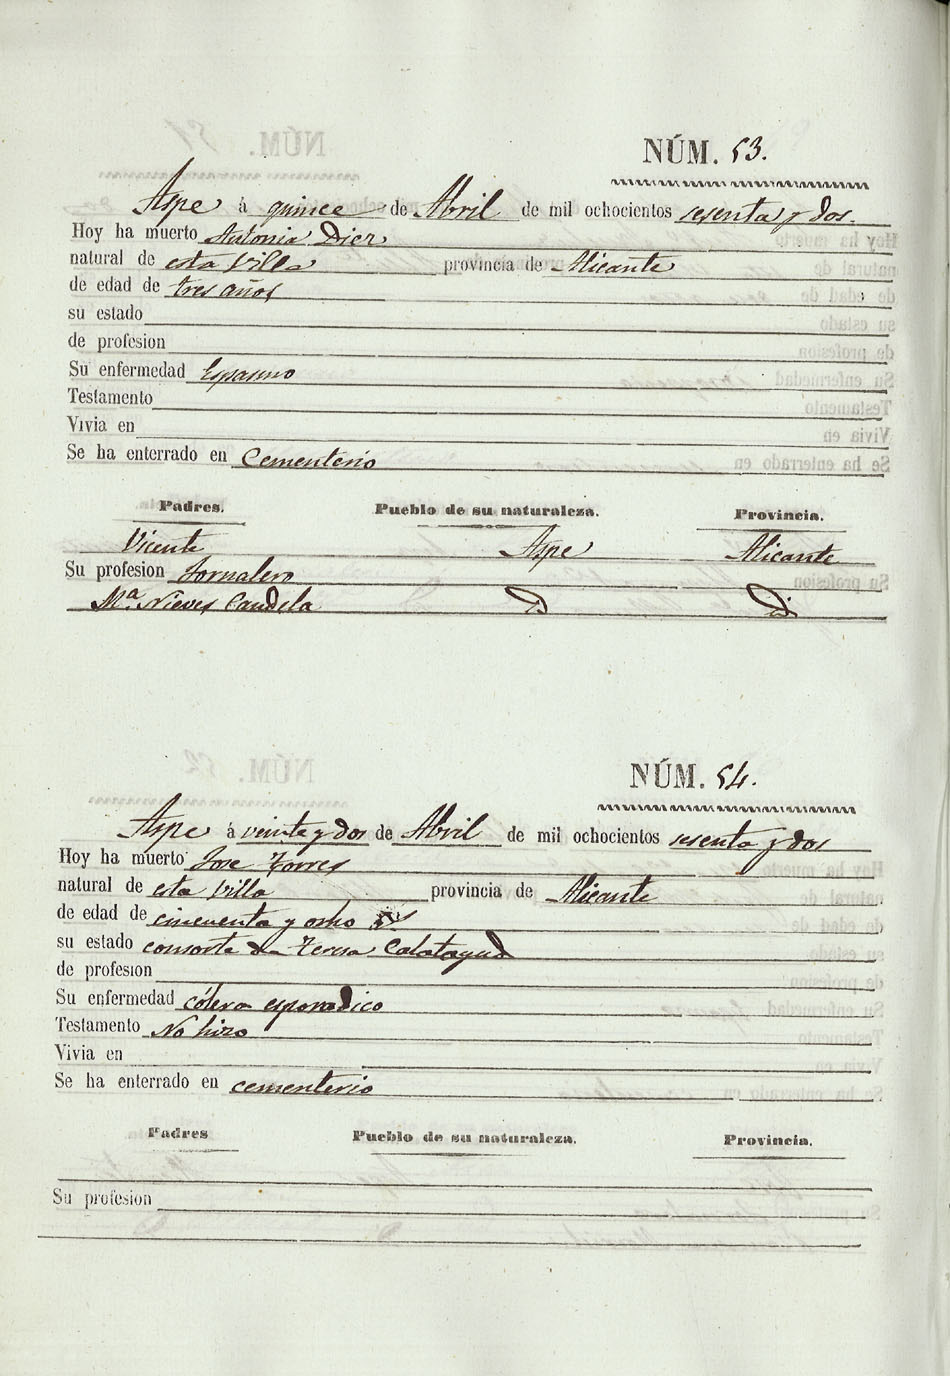 NÚM. 53.
Aspe á quince de Abril de mil ochocientos sesenta y dos.
Hoy ha muerto Antonia Diez
natural de esta Villa provincia de Alicante
de edad de tres años
su estado
de profesion
Su enfermedad Espasmo
Testamento
Vivia en
Se ha enterrado en Cementerio
Padres. Pueblo de su naturaleza. Provincia.
Vicente Aspe Alicante
Su profesion Jornalero
Mª. Nieves Candela
NÚM. 54.
Aspe á veinte y dos de Abril de mil ochocientos sesenta y dos
Hoy ha muerto Jose Torres
natural de esta Villa provincia de Alicante
de edad de cincuenta y ocho
su estado consorte de Teresa Calatayud
de profesion
Su enfermedad cólera esporadico
Testamento No hizo
Vivia en
Se ha enterrado en cementerio
Padres Pueblo de su naturaleza. Provincia.
Su profesion